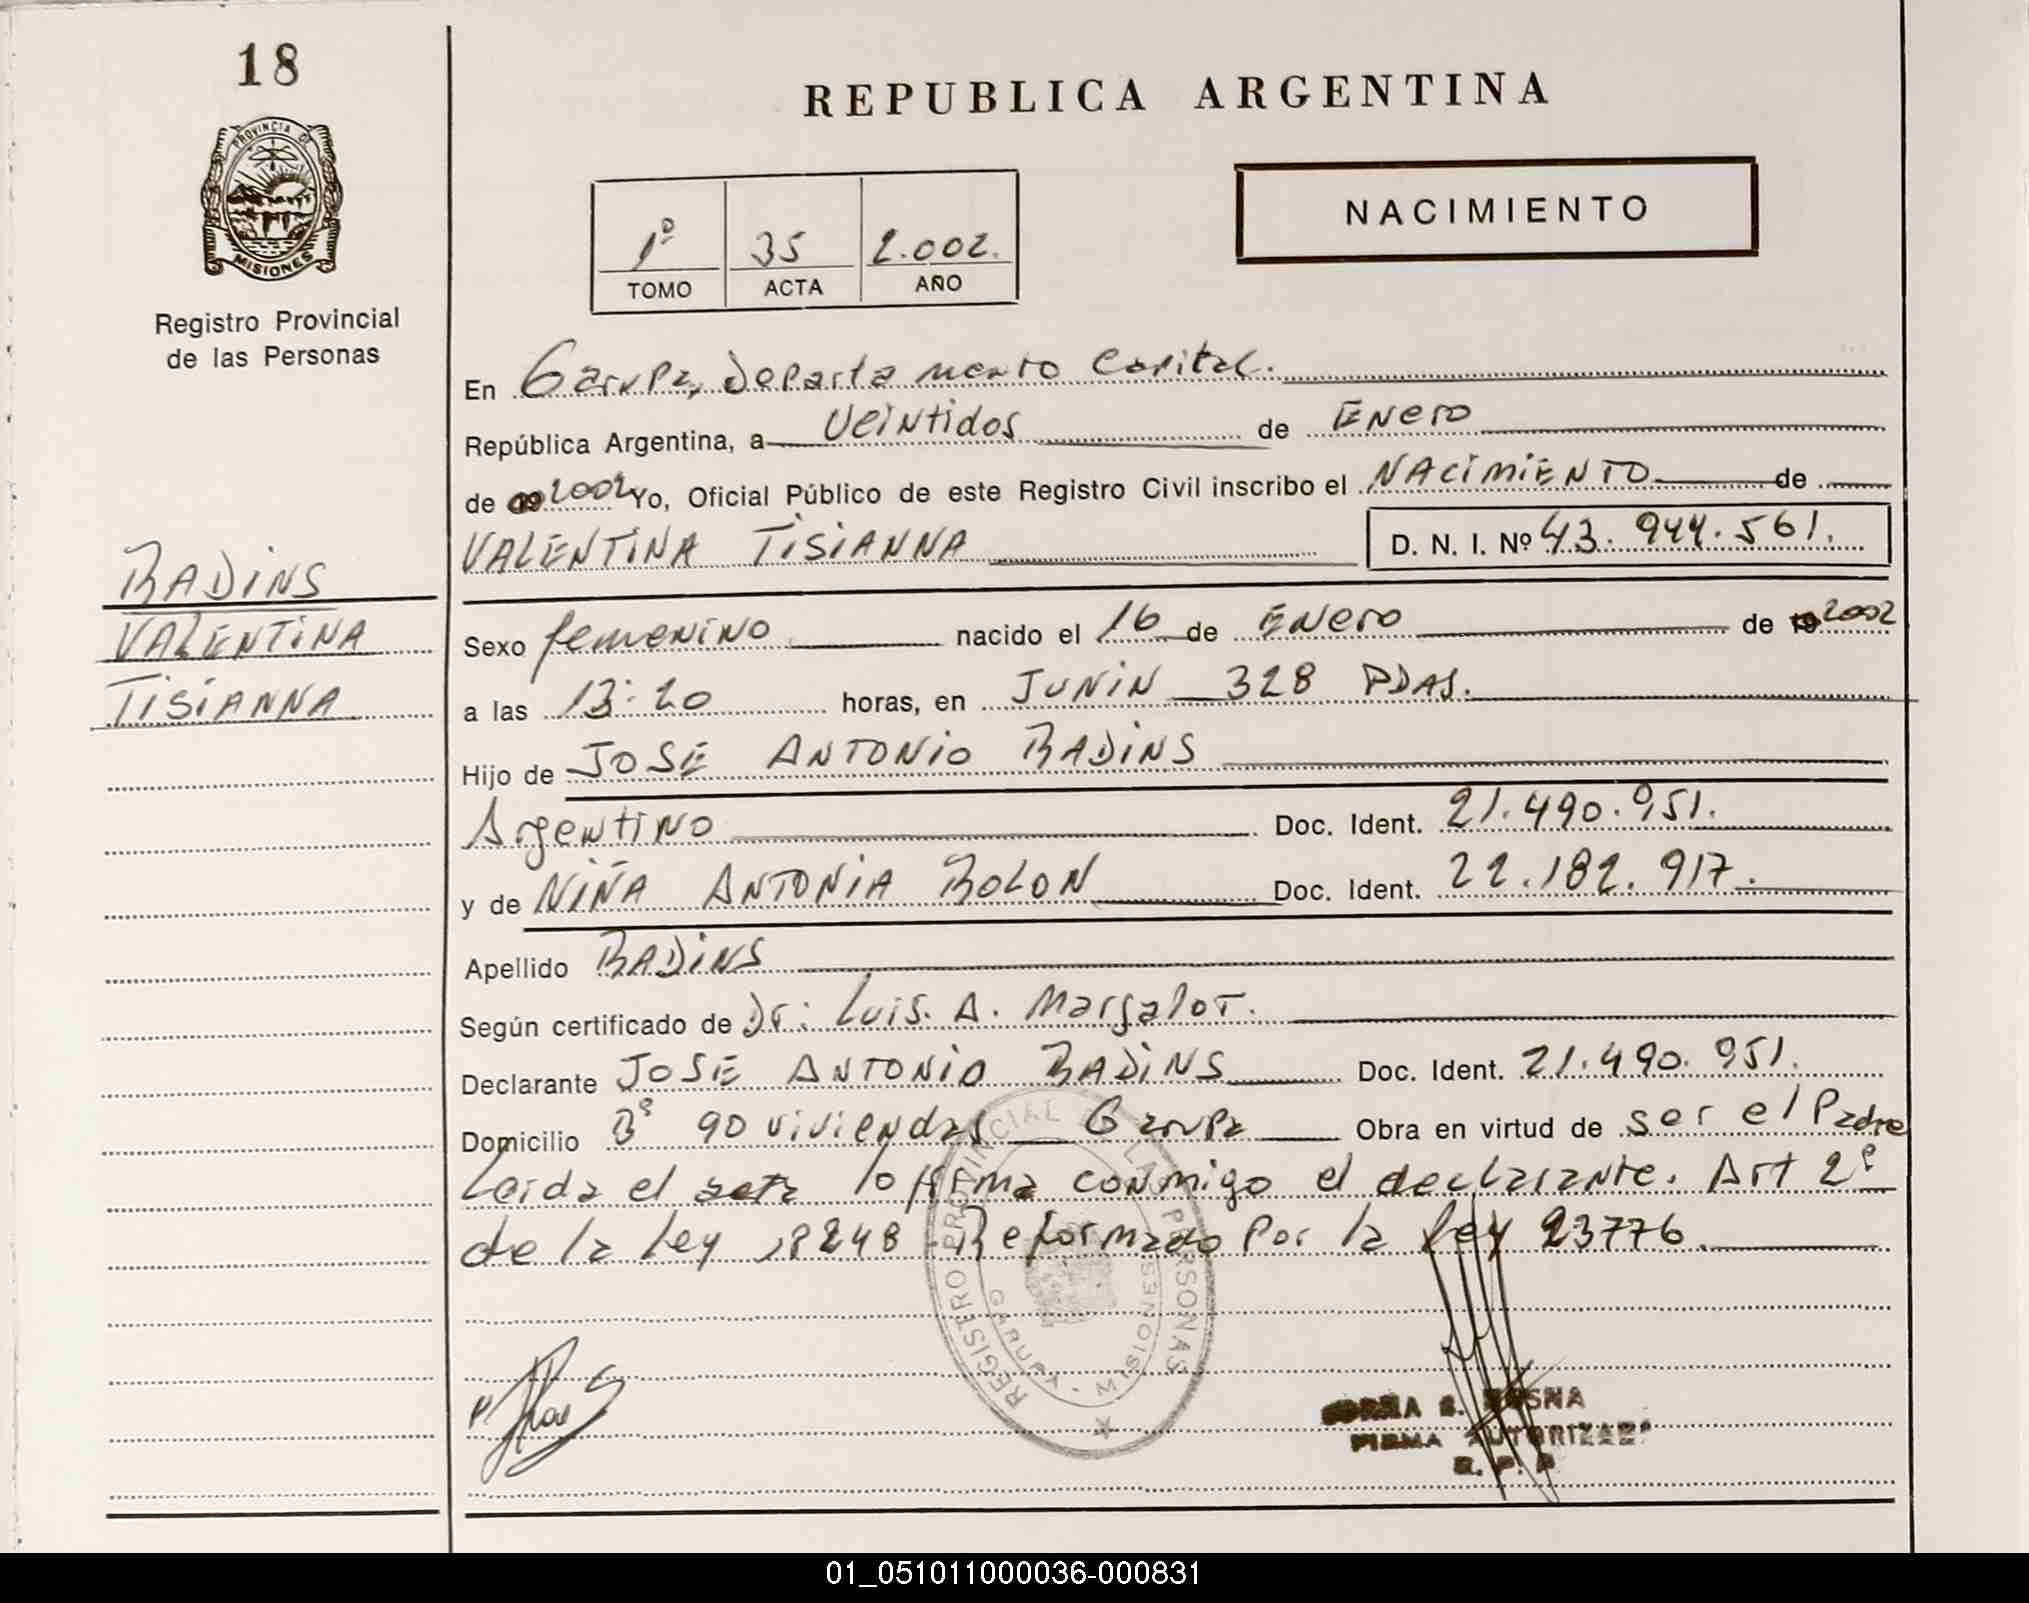 18
PROVINCIA DE
MISIONES
Registro Provincial
de las Personas
REPUBLICA ARGENTINA
1º 35 2.002.
TOMO ACTA AÑO
NACIMIENTO
En Garupa, Departamento Capital.
República Argentina, a Veintidos de Enero
de 2002 Yo, Oficial Público de este Registro Civil inscribo el NACIMIENTO de
VALENTINA TISIANNA D. N. I. Nº 43.944.561.
BADINS
VALENTINA
TISIANNA
Sexo femenino nacido el 16 de Enero de 19 2002
a las 13:20 horas, en JUNIN 328 PDAS.
Hijo de JOSE ANTONIO BADINS
Argentino Doc. Ident. 21.490.951.
y de NIÑA ANTONIA BOLON Doc. Ident. 22.182.917.
Apellido BADINS
Según certificado de Dr: Luis. A. Margalot.
Declarante JOSE ANTONIO BADINS Doc. Ident. 21.490.951.
Domicilio Bº 90 viviendas Garupa Obra en virtud de ser el Padre
Leida el acta lo firma conmigo el declarante. Art 2º
de la Ley 18248 Reformado Por la Ley 23776.
REGISTRO PROVINCIAL DE LAS PERSONAS
GARUPA - MISIONES
FIRMA AUTORIZADA
R. P. P
01_051011000036-000831